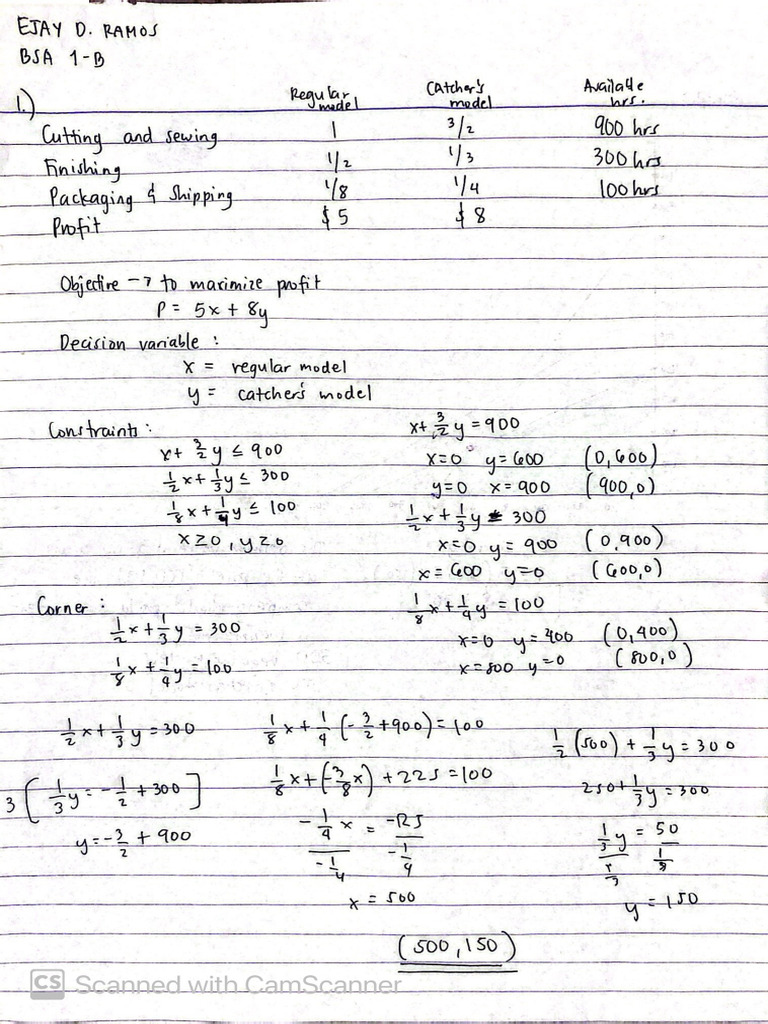 EJAY D. RAMOS
BSA 1-B
1.)
Regular model Catcher's model Available hrs.
Cutting and sewing 1 3/2 900 hrs
Finishing 1/2 1/3 300 hrs
Packaging & Shipping 1/8 1/4 100 hrs
Profit $5 $8
Objective → to maximize profit
P = 5x + 8y
Decision variable :
x = regular model
y = catcher's model
Constraints :
x + 3/2 y ≤ 900
1/2 x + 1/3 y ≤ 300
1/8 x + 1/4 y ≤ 100
x ≥ 0, y ≥ 0
x + 3/2 y = 900
x=0 y=600 (0,600)
y=0 x=900 (900,0)
1/2 x + 1/3 y = 300
x=0 y=900 (0,900)
x=600 y=0 (600,0)
1/8 x + 1/4 y = 100
x=0 y=400 (0,400)
x=800 y=0 (800,0)
Corner :
1/2 x + 1/3 y = 300
1/8 x + 1/4 y = 100
1/2 x + 1/3 y = 300
3 [ 1/3 y = -1/2 + 300 ]
y = -3/2 + 900
1/8 x + 1/4 (-3/2 + 900) = 100
1/8 x + (-3/8 x) + 225 = 100
-1/4 x = -125
-1/4 -1/4
x = 500
1/2 (500) + 1/3 y = 300
250 + 1/3 y = 300
1/3 y = 50
1/3 1/3
y = 150
(500, 150)
CS Scanned with CamScanner